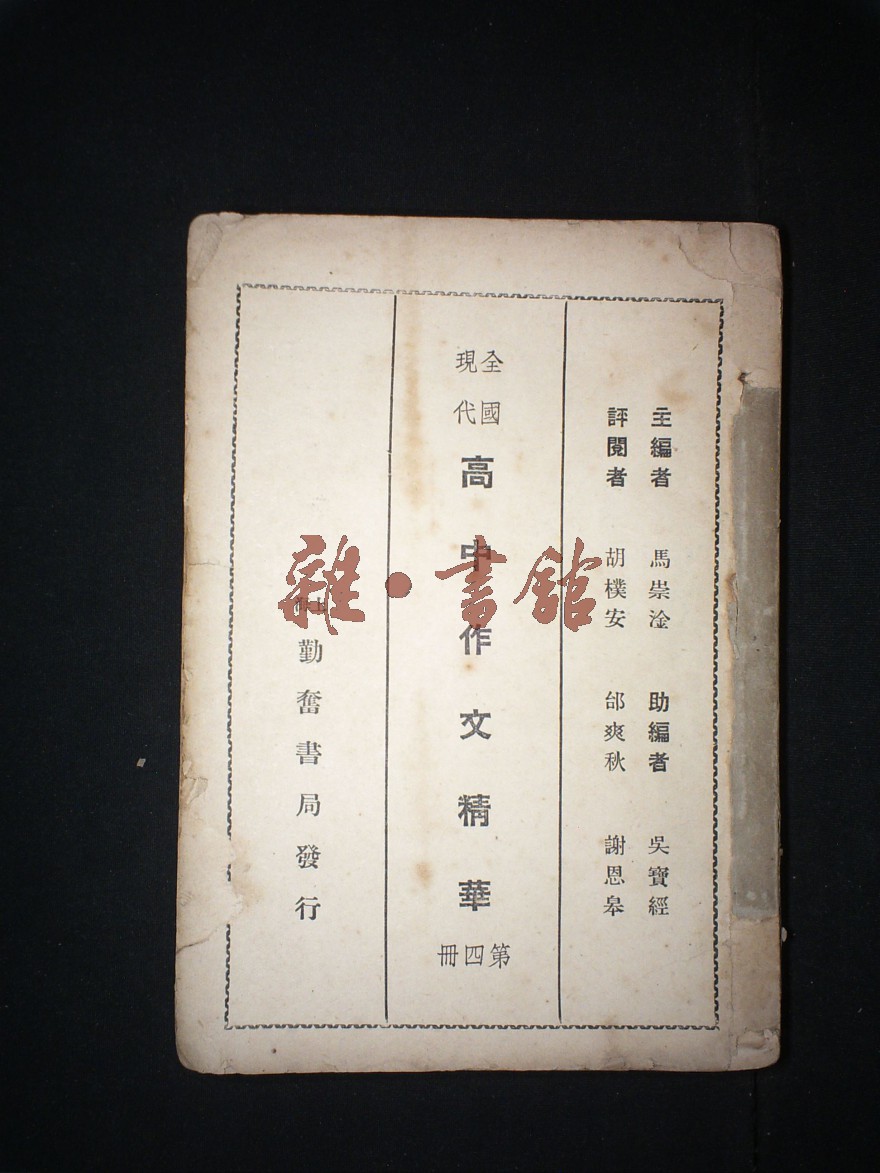 主編者 馬崇淦 助編者 吳寶經
評閱者 胡樸安 邰爽秋 謝恩皋
全國
現代
高中作文精華
第四冊
上海
勤奮書局發行
雜·書館